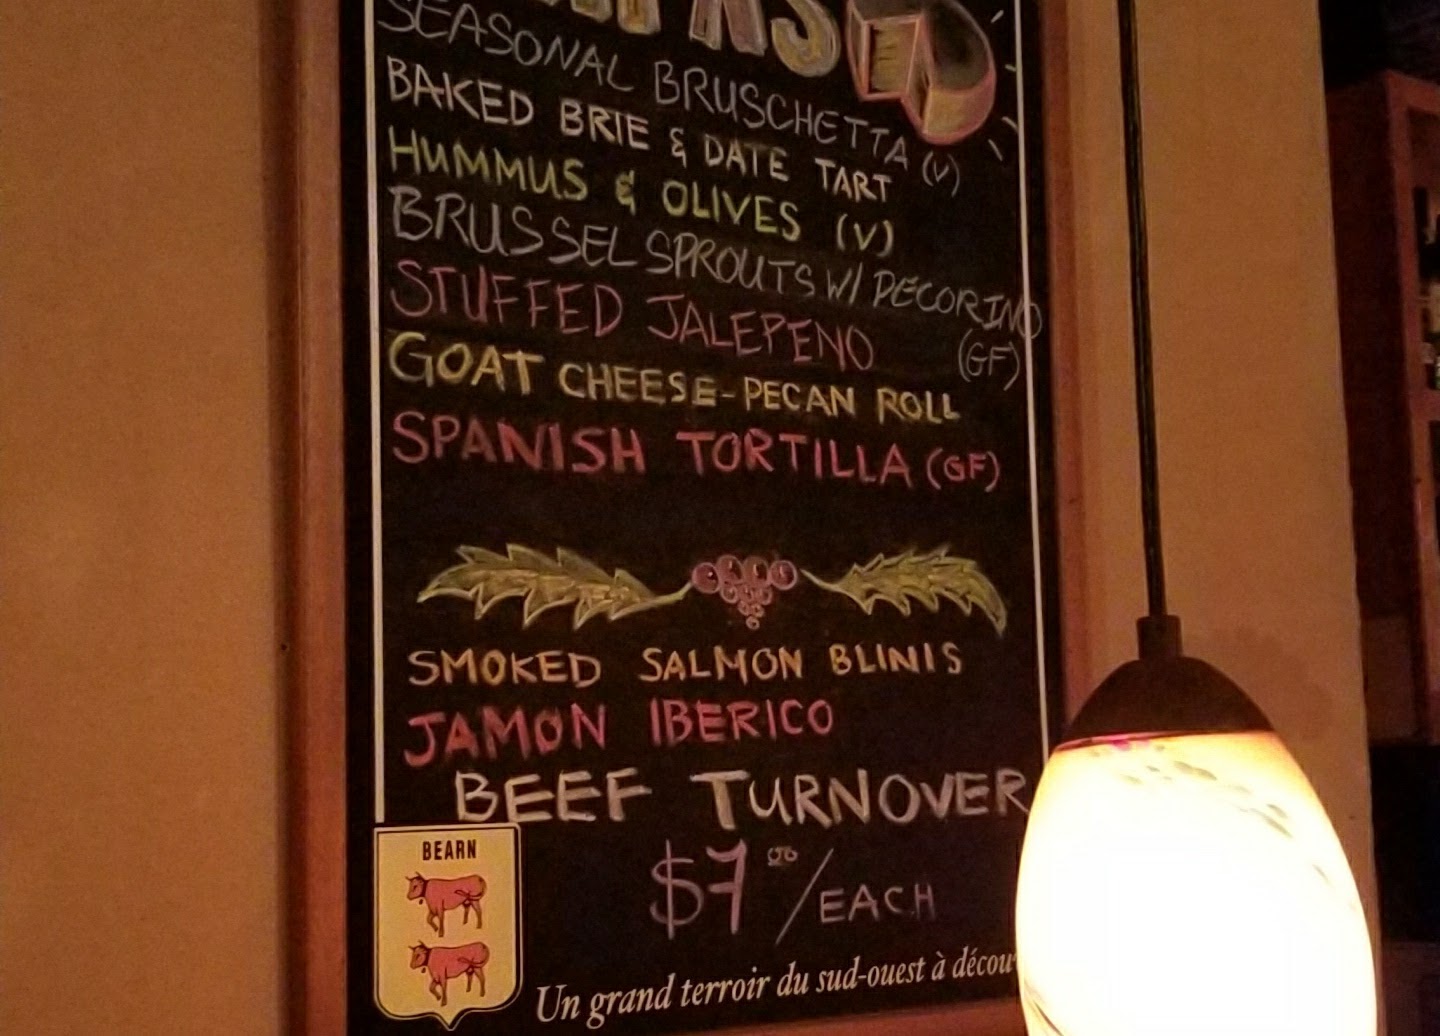 SEASONAL BRUSCHETTA (V)
BAKED BRIE & DATE TART
HUMMUS & OLIVES (V)
BRUSSEL SPROUTS W/ PECORINO
(GF)
STUFFED JALEPENO
GOAT CHEESE-PECAN ROLL
SPANISH TORTILLA (GF)
SMOKED SALMON BLINIS
JAMON IBERICO
BEEF TURNOVER
$7.00/EACH
BEARN
Un grand terroir du sud-ouest à